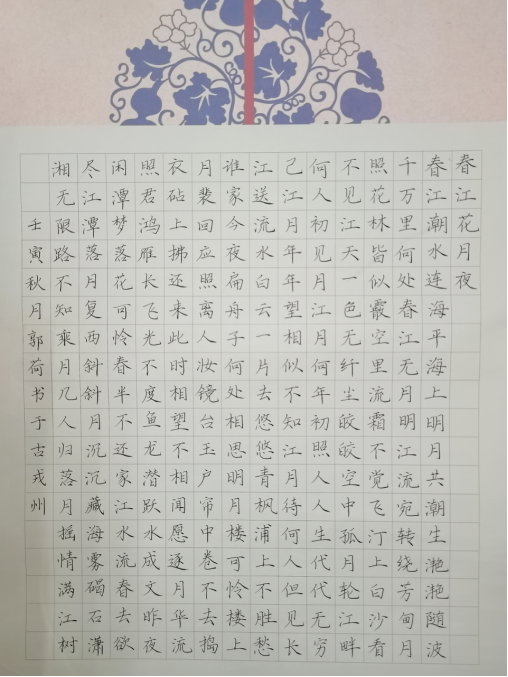 春江花月夜
春江潮水连海平海上明月共潮生滟滟随波
千万里何处春江无月明江流宛转绕芳甸月
照花林皆似霰空里流霜不觉飞汀上白沙看
不见江天一色无纤尘皎皎空中孤月轮江畔
何人初见月江月何年初照人人生代代无穷
己江月年年望相似不知江月待何人但见长
江送流水白云一片去悠悠青枫浦上不胜愁
谁家今夜扁舟子何处相思明月楼可怜楼上
月裴回应照离人妆镜台玉户帘中卷不去捣
衣砧上拂还来此时相望不相闻愿逐月华流
照君鸿雁长飞光不度鱼龙潜跃水成文昨夜
闲潭梦落花可怜春半不还家江水流春去欲
尽江潭落月复西斜斜月沉沉藏海雾碣石潇
湘无限路不知乘月几人归落月摇情满江树
壬寅秋月郭荷书于古戎州